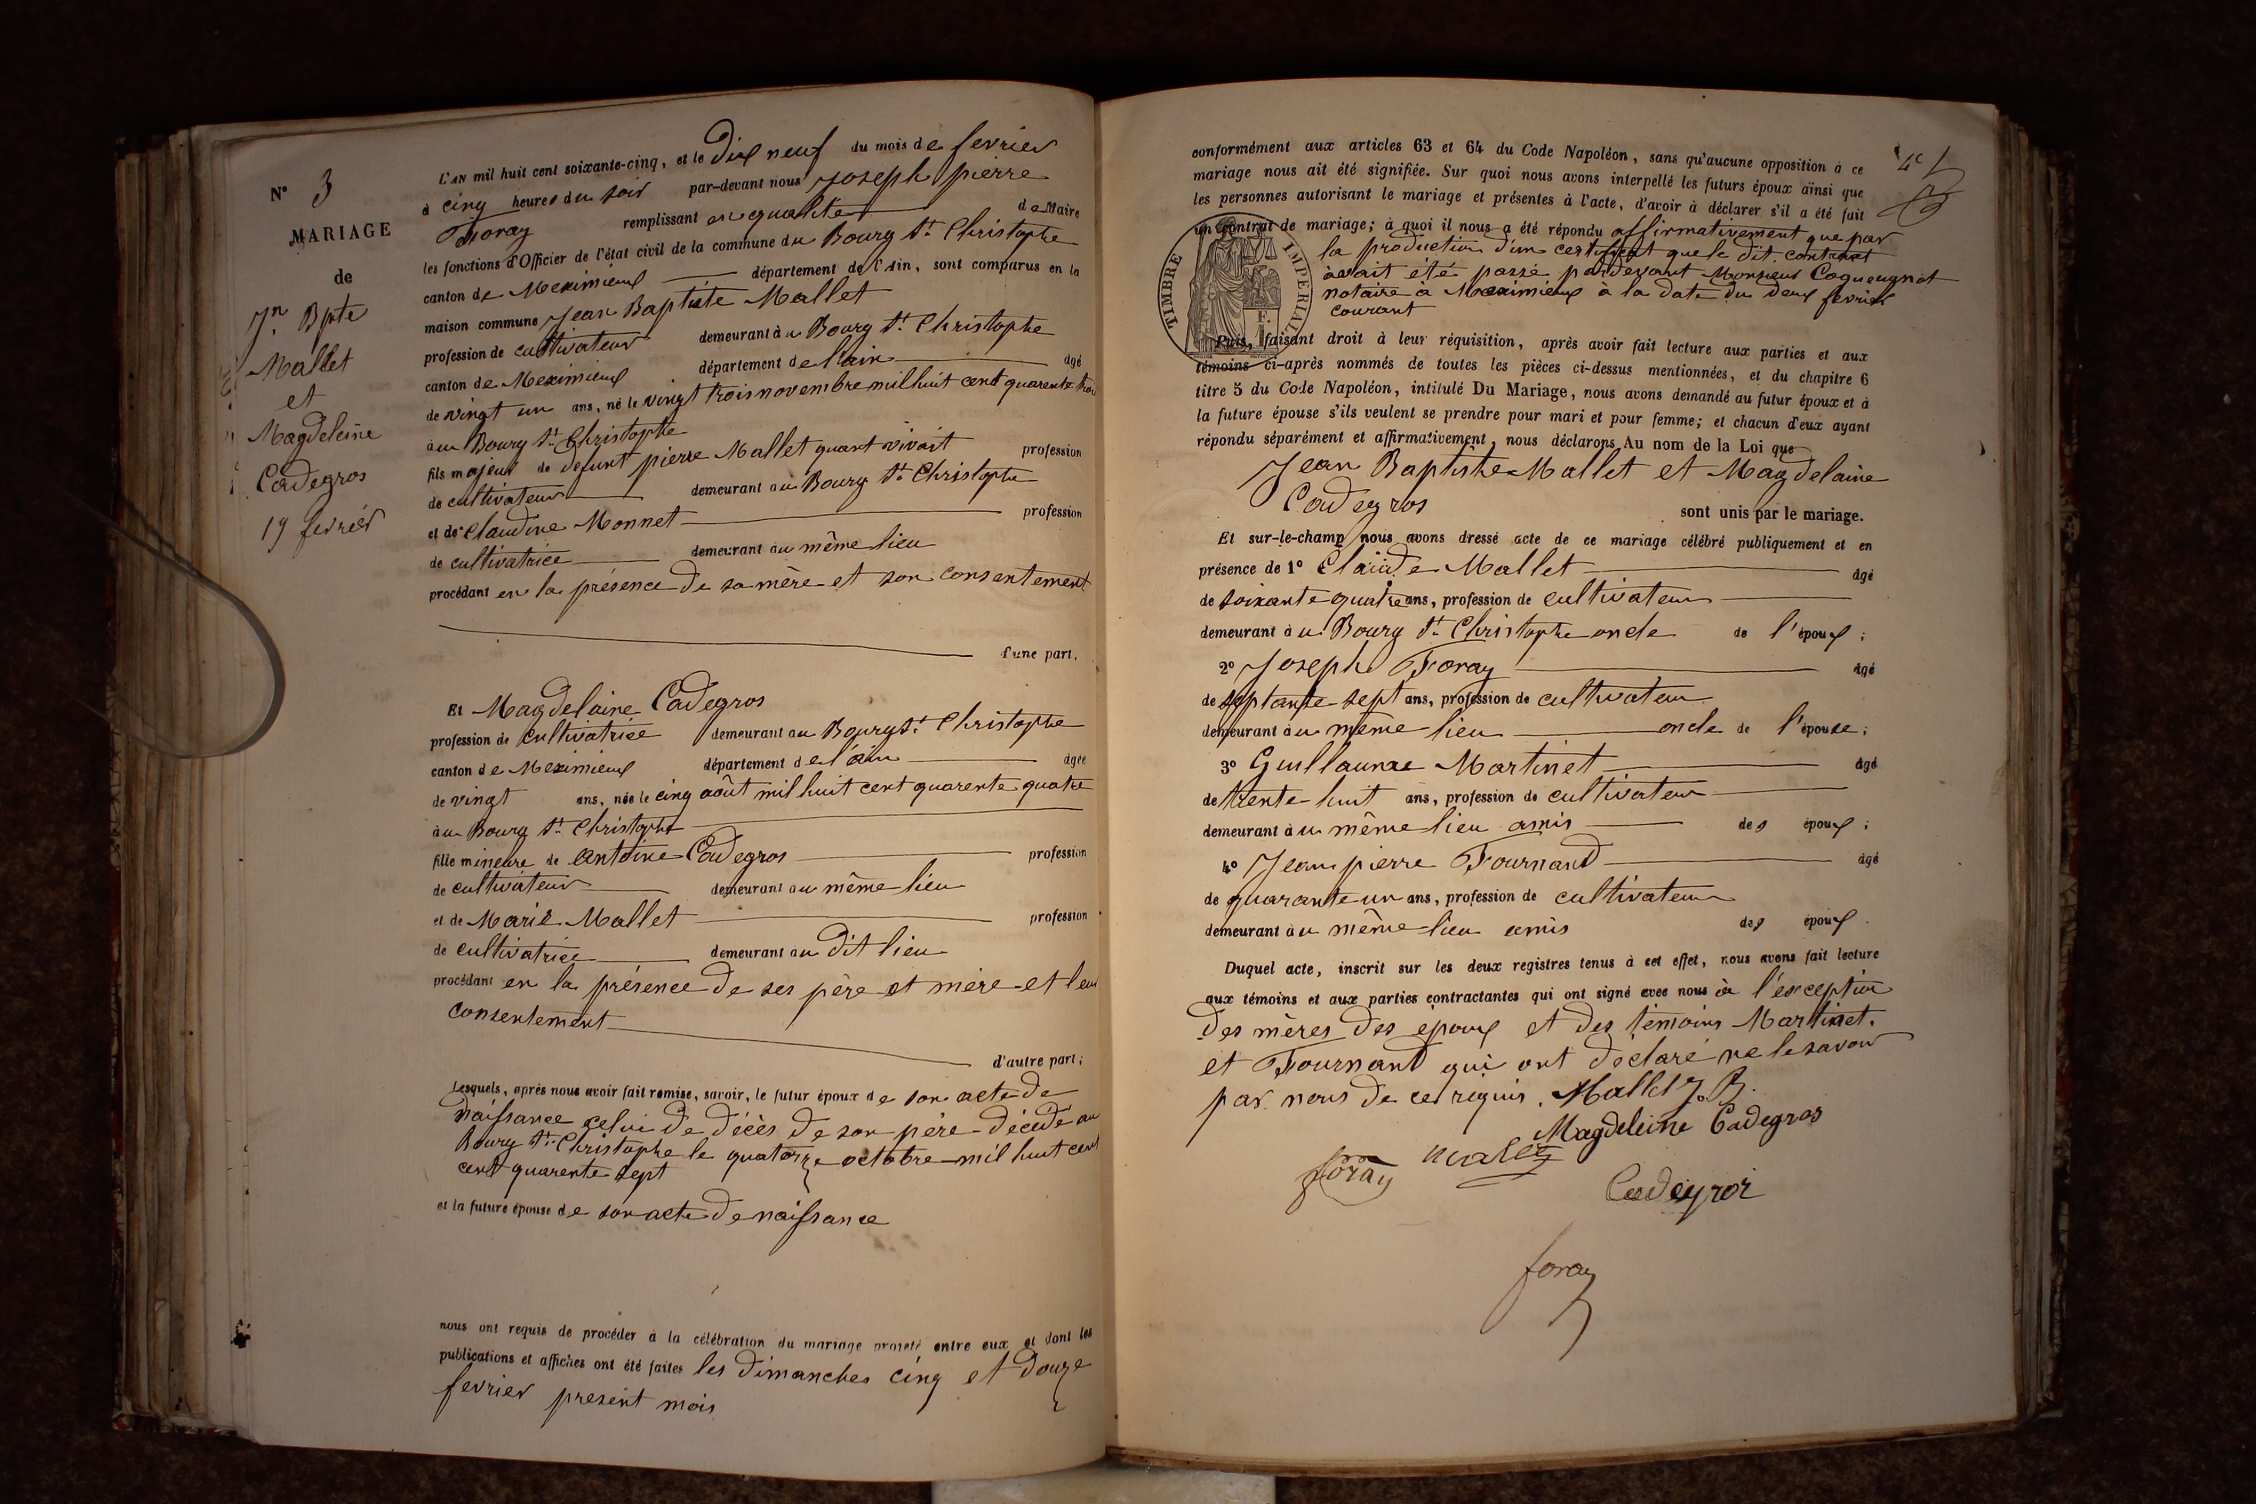 N° 3
MARIAGE
de
Jn. Bpte
Mallet
et
Magdeleine
Cadegros
19 fevrier
L'AN mil huit cent soixante-cinq, et le Dix neuf du mois de fevrier
à cinq heures du soir par-devant nous Joseph pierre
Foray remplissant en qualité de Maire
les fonctions d'Officier de l'état civil de la commune du Bourg St. Christophe
canton de Meximieux département de l'Ain, sont comparus en la
maison commune Jean Baptiste Mallet
profession de cultivateur demeurant à u Bourg St. Christophe
canton de Meximieux département de l'ain âgé
de vingt un ans, né le vingt trois novembre mil huit cent quarente trois
à au Bourg St. Christophe
fils majeur de defunt pierre Mallet quant vivait profession
de cultivateur demeurant au Bourg St. Christophe
et de Claudine Monnet profession
de cultivatrice demeurant au même lieu
procédant en la présence de sa mère et son consentement
d'une part.
Et Magdelaine Cadegros
profession de cultivatrice demeurant au Bourg St. Christophe
canton de Meximieux département de l'ain âgée
de vingt ans, née le cinq août mil huit cent quarente quatre
à au Bourg St. Christophe
fille mineure de antoine Cadegros profession
de cultivateur demeurant au même lieu
et de Marie Mallet profession
de cultivatrice demeurant au dit lieu
procédant en la présence de ses père et mère et leur
consentement
d'autre part;
Lesquels, après nous avoir fait remise, savoir, le futur époux de son acte de
naissance celui de décès de son père décédé au
Bourg St. Christophe le quatorze octobre mil huit cent
cent quarente sept
et la future épouse de son acte de naissance
nous ont requis de procéder à la célébration du mariage projeté entre eux et dont les
publications et affiches ont été faites les dimanches cinq et douze
fevrier present mois
conformément aux articles 63 et 64 du Code Napoléon, sans qu'aucune opposition à ce
mariage nous ait été signifiée. Sur quoi nous avons interpellé les futurs époux aïnsi que
les personnes autorisant le mariage et présentes à l'acte, d'avoir à déclarer s'il a été fait
un contrat de mariage; à quoi il nous a été répondu affirmativement que par
la production d'un certificat que le dit contrat
avait été passé pardevant Monsieur Coqueugnot
notaire à Meximieux à la date du deux fevrier
courant
TIMBRE IMPERIAL
Puis, faisant droit à leur réquisition, après avoir fait lecture aux parties et aux
témoins ci-après nommés de toutes les pièces ci-dessus mentionnées, et du chapitre 6
titre 5 du Code Napoléon, intitulé Du Mariage, nous avons demandé au futur époux et à
la future épouse s'ils veulent se prendre pour mari et pour femme; et chacun d'eux ayant
répondu séparément et affirmativement, nous déclarons Au nom de la Loi que
Jean Baptiste Mallet et Magdelaine
Cadegros sont unis par le mariage.
Et sur-le-champ nous avons dressé acte de ce mariage célébré publiquement et en
présence de 1° Claude Mallet âgé
de soixante quatre ans, profession de cultivateur
demeurant à u Bourg St. Christophe oncle de l'époux;
2° Joseph Foray âgé
de septante sept ans, profession de cultivateur
demeurant à u même lieu oncle de l'épouse;
3° Guillaume Martinet âgé
de trente huit ans, profession de cultivateur
demeurant à u même lieu amis des époux;
4° Jean pierre Fournand âgé
de quarante un ans, profession de cultivateur
demeurant à u même lieu amis des époux.
Duquel acte, inscrit sur les deux registres tenus à cet effet, nous avons fait lecture
aux témoins et aux parties contractantes qui ont signé avec nous à l'exception
des mères des époux et des témoins Martinet.
et Fournand qui ont déclaré ne le savoir
par nous de ce requis. Mallet J. B.
Magdeleine Cadegros
foray malet
Cadegros
foray